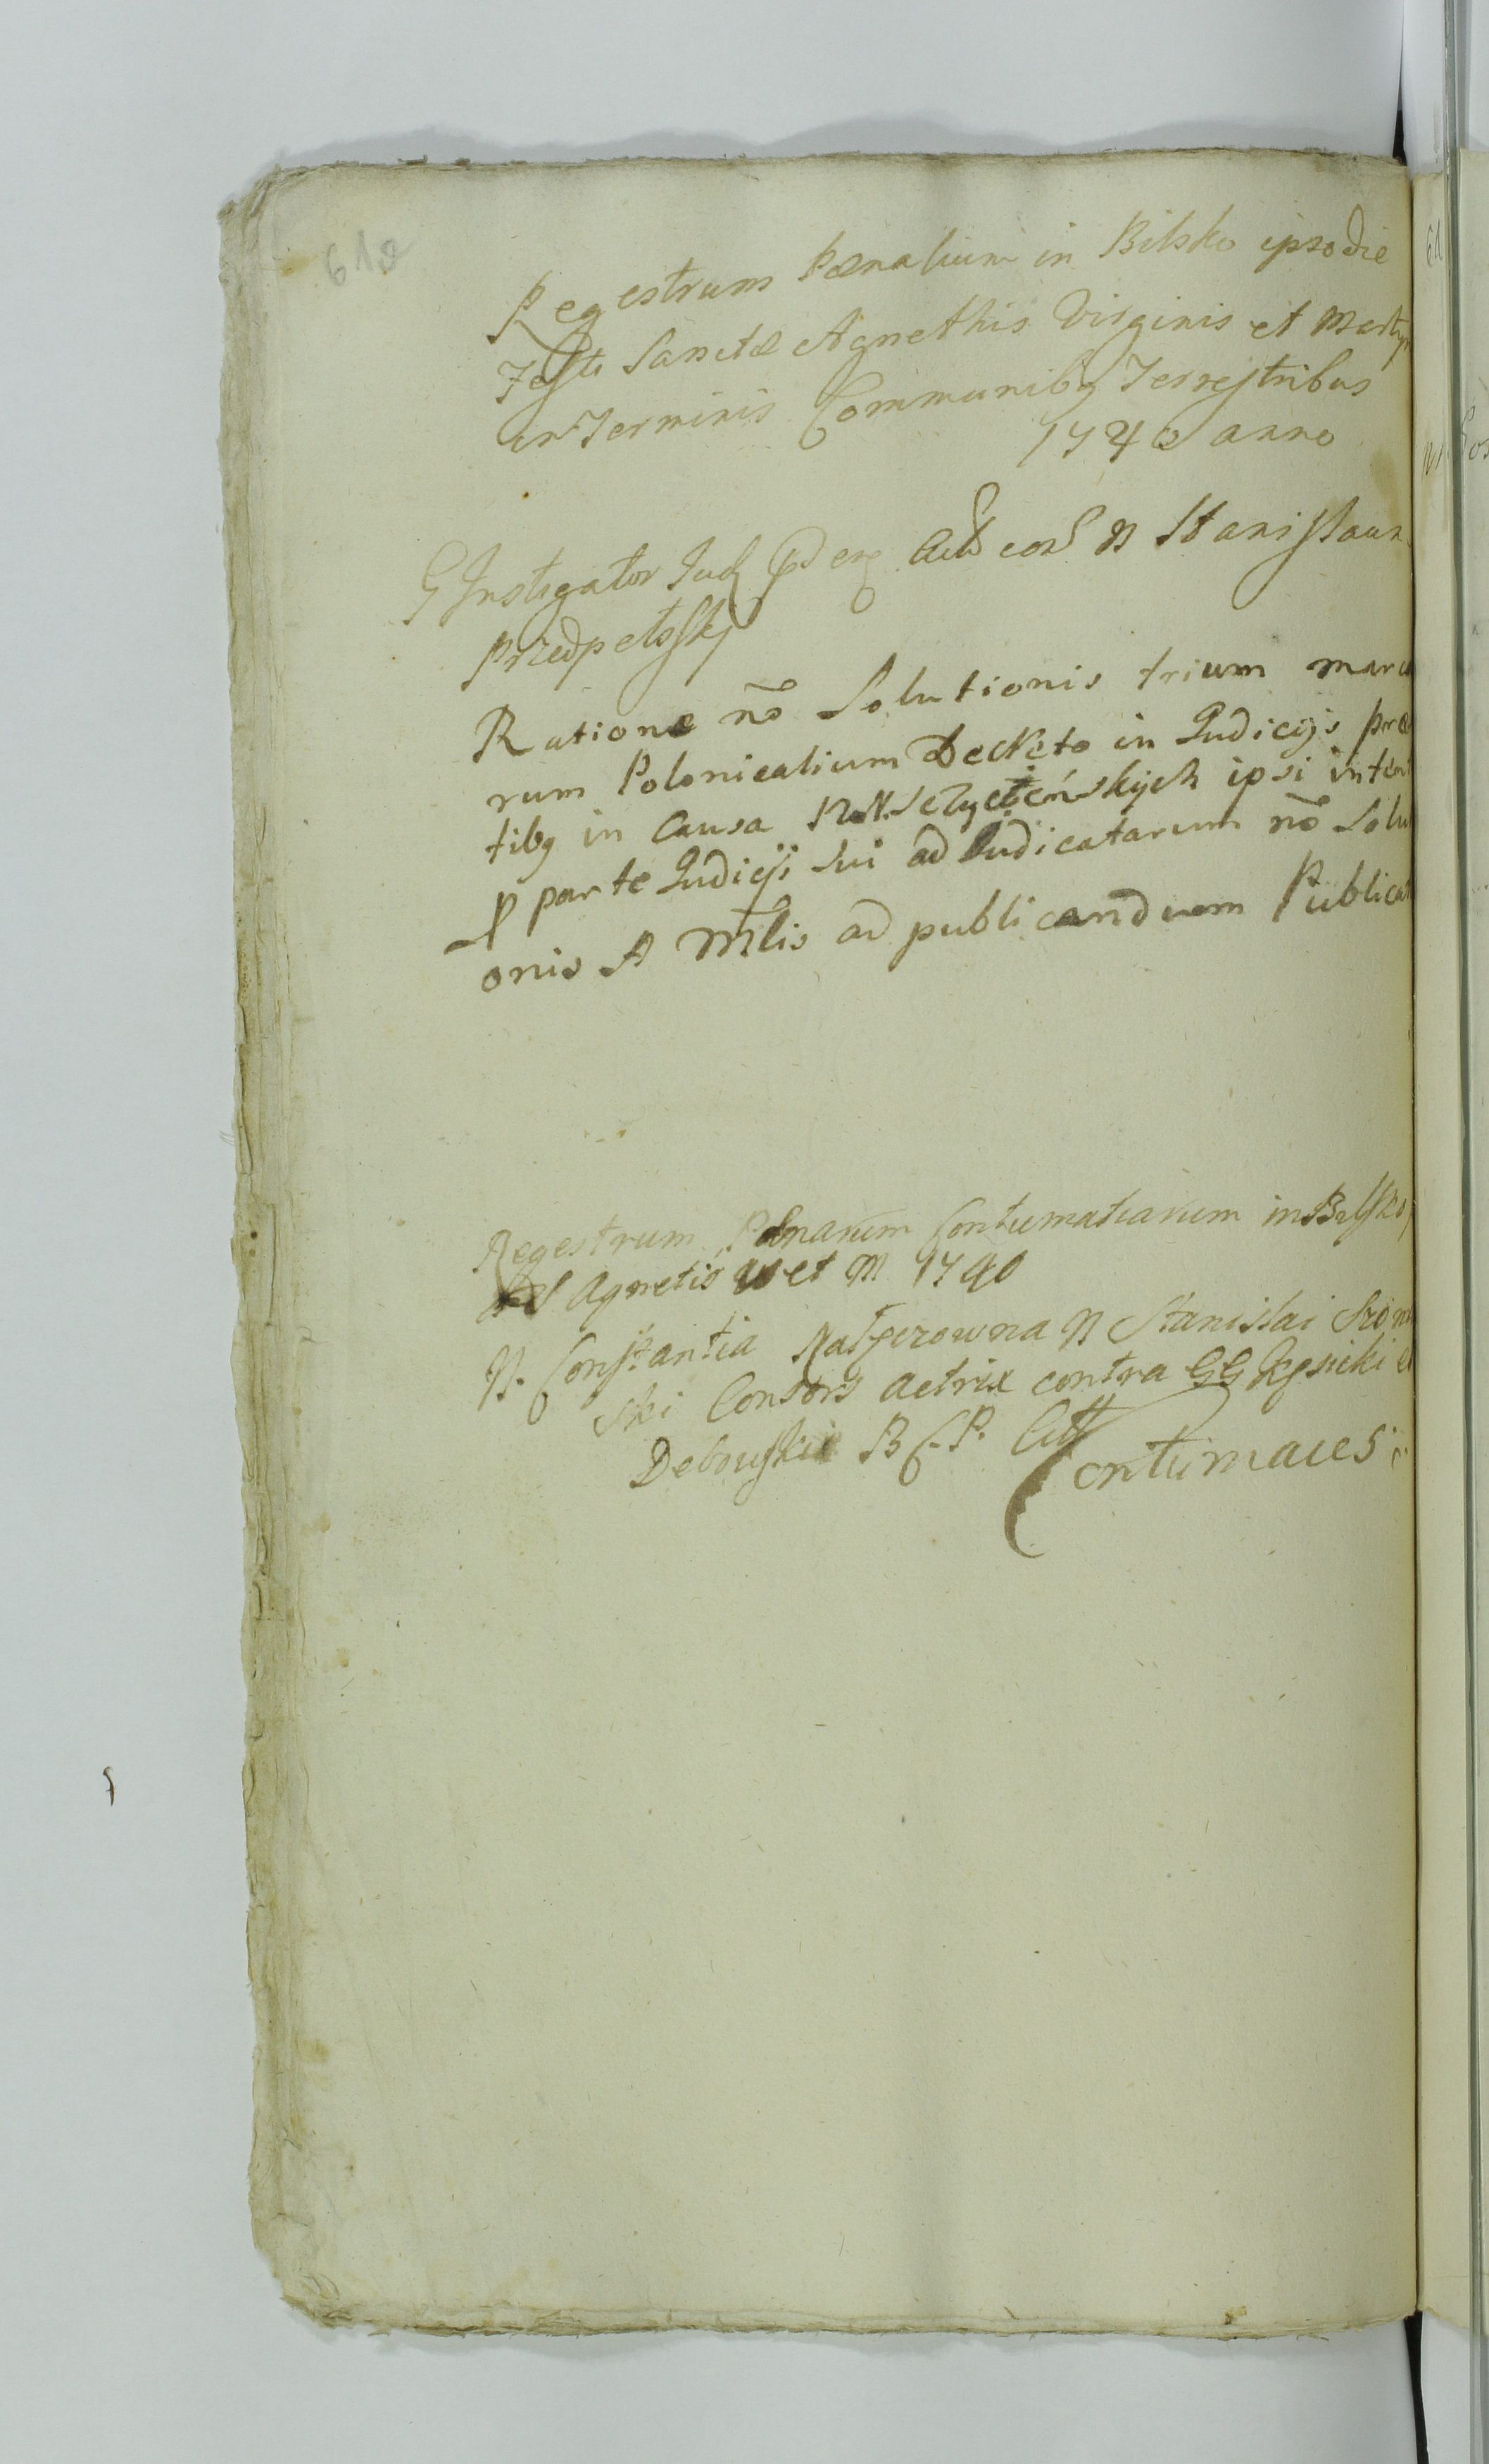 612
Regestrum Pœnalium in Bilsko ipso die
Festi Sanctæ Agnethis Virginis et Marty
in Terminis Communibq Terrestribus
1740 anno
G Instigator Jud Act con N Stanislaum
Przedpełsky
Ratione nõ Solutionis trium marca
rum Polonicalium Decreto in Judicijs præ
tibq in Causa NN. ipsi
parte Judicÿ sui ad Judicatarum nõ Solu
onis A Mtlis ad publicandum Publicat
Regestrum Pœnarum Contumatiarum in Bilsko
S Agnetis V et M 1740
N. Constantia N Stanislai
ski Consors actrix contra GG et
Debowskie B C. P. Citt
Contumaces